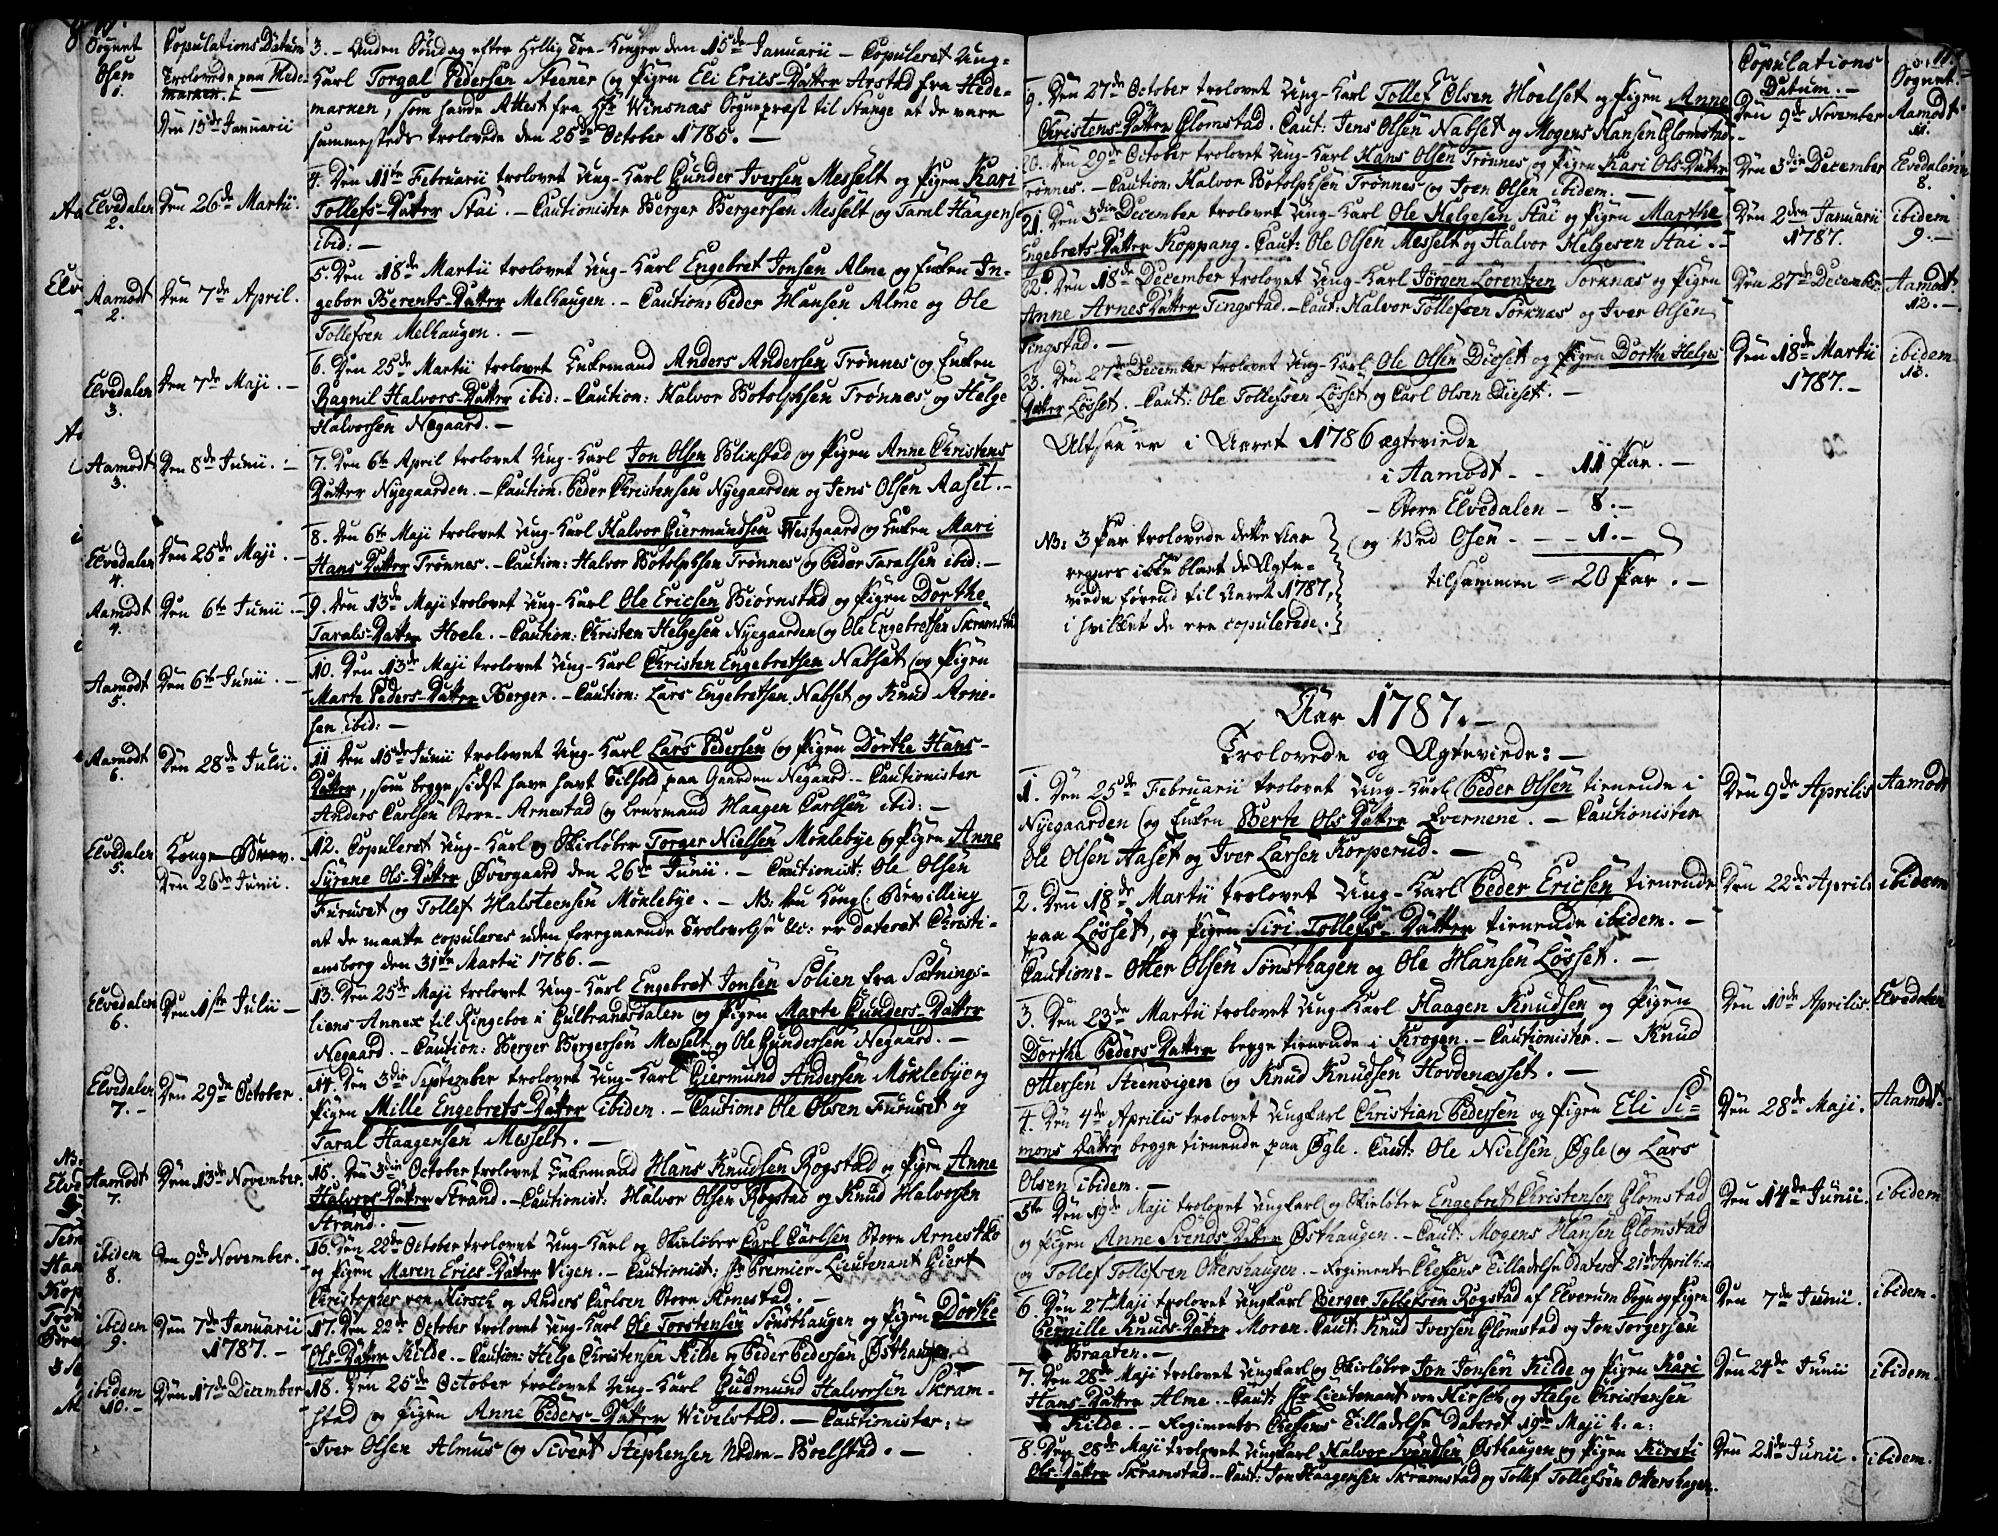 Sognet
Copulations Datum
3. - Anden Søndag efter Hellig Tre-Konger den 15de Januarii - Copuleret Ung-
Osen
1.
Trolovede paa Hede-
marken.
Den 15de Januarii
Karl Torgal Pedersen Steener og Pigen Eli Erics-Datter Arstad fra Hede-
marken, som havde Attest fra Hr Winsnas Sognepræst til Stange at de vare
sammesteds trolovede den 25de October 1785. -
Elvedalen
2.
Den 26de Martii.
4. Den 11te Februarii trolovet Ung-Karl Gunder Iversen Messelt og Pigen Kari
Tollefs-Datter Stai. - Cautionister Berger Bergersen Messelt og Taral Haagensen
ibid: -
Aamodt
2.
Den 7de April.
5. Den 18de Martii trolovet Ung-Karl Engebret Jonsen Alme og Enken In-
gebor Berents-Datter Melhaugen. - Caution: Peder Hansen Alme og Ole
Tollefsen Melhaugen. -
Elvedalen
3.
Den 7de Maji. -
6. Den 25de Martii trolovet Enkemand Anders Andersen Trønnes og Enken
Ragnil Halvors-Datter ibid: - Caution: Halvor Botolphsen Trønnes og Helge
Halvorsen Negaard. -
Aamodt
3.
Den 8de Junii. -
7. Den 6te April trolovet Ung-Karl Jon Olsen Blikstad og Pigen Anne Christens
Datter Nyegaarden. - Caution: Peder Christensen Nyegaarden og Jens Olsen Aaset. -
Elvedalen
4.
Den 25de Maji. -
8. Den 6te Maji trolovet Ung-Karl Halvor Giermundsen Westgaard og Enken Mari
Hans Datter Trønnes. - Caution: Halvor Botolphsen Trønnes og Peder Taralsen ibid: -
Aamodt
4.
Den 6te Junii. -
9. Den 13de Maji trolovet Ung-Karl Ole Ericsen Biørnstad og Pigen Dorthe
Tarals-Datter Hoele. - Caution: Christen Helgesen Nyegaarden og Ole Engebretsen Skramstad
Aamodt
5.
Den 6te Junii. -
10. Den 13de Maji trolovet Ung-Karl Christen Engebretsen Nabset og Pigen
Marte Peders-Datter Berger. - Caution: Lars Engebretsen Nabset og Knud Arne-
sen ibid: -
Aamodt
6.
Den 28de Julii.
11 Den 15de Junii trolovet Ung-Karl Lars Pedersen og Pigen Dorthe Hans-
Datter, som begge sidst have havt Tilhold paa Gaarden Negaard. - Cautionister
Anders Carlsen Store-Arnestad og Lensmand Haagen Carlsen ibid: -
Elvedalen
5.
Konge-Brev. -
Den 26de Junii.
12. Copuleret Ung-Karl og Skieløber Torger Nielsen Møklebye og Pigen Anne
Syrene Ols-Datter Øvergaard den 26de Junii. - Cautionist: Ole Olsen
Furuset og Tollef Halsteensen Møklebye. - NB: den Kongl: Bevilling
at de maatte copuleres uden foregaaende Trolovelse &c: er dateret Christi-
ansborg den 31te Martii 1786. -
Elvedalen
6.
Den 1ste Julii -
13. Den 25de Maji trolovet Ung-Karl Engebret Jonsen Solien fra Sætnings-
liens Annex til Ringeboe i Gulbrandsdalen og Pigen Marte Gunders-Datter
Negaard. - Caution: Berger Bergersen Messelt og Ole Gundersen Negaard. -
Elvedalen
7. -
Den 29de October.
14. Den 3die September trolovet Ung-Karl Giermund Andersen Møklebye og
Pigen Mille Engebrets-Datter ibidem. - Caution: Ole Olsen Furuset og
Taral Haagensen Messelt. -
Aamodt
7.
Den 13de November.
15. Den 3die October trolovet Enkemand Hans Knudsen Rogstad og Pigen Anne
Halvors-Datter Strand. - Cautionist: Halvor Olsen Rogstad og Knud Halvorsen
Strand. -
ibidem
8.
Den 9de November.
16. Den 22de October trolovet Ung-Karl og Skieløber Carl Carlsen Store Arnestad
og Pigen Maren Erics-Datter Vigen. - Cautionist: Hr Premier-Lieutenant Giert
Christopher von Hirsch og Anders Carlsen Store Arnestad. -
ibidem
9.
Den 7de Januarii
1787. -
17. Den 22de October trolovet Ung-Karl Ole Torstensen Sønsthaugen og Pigen Dorthe
Ols-Datter Kilde. - Caution: Helge Christensen Kilde og Peder Pedersen Østhaugen
ibidem
10. -
Den 17de December
18. Den 25de October trolovet Ung-Karl Gudmund Halvorsen Skram-
stad og Pigen Anne Peders-Datter Wivelstad. - Cautionister:
Iver Olsen Almus og Sivert Stephensen Nedre-Boelstad. -
Copulations
Datum. -
Sognet
19. Den 27de October trolovet Ung-Karl Tollef Olsen Hoelset og Pigen Anne
Christens-Datter Glomstad. Caut: Jens Olsen Nabset og Mogens Hansen Glomstad. -
Den 9de November
Aamodt
11.
20. Den 29de October trolovet Ung-Karl Hans Olsen Trønnes og Pigen Kari Ols-Datter
Trønnes. - Caution: Halvor Botolphsen Trønnes og Joen Olsen ibidem. -
Den 3die December
Elvedalen
8.
21. Den 3die December trolovet Ung-Karl Ole Helgesen Stai og Pigen Marthe
Engebrets-Datter Koppang. Caut: Ole Olsen Messelt og Halvor Helgesen Stai. -
Den 2den Januarii
1787.
ibidem
9. -
22. Den 18de December trolovet Ung-Karl Jørgen Lorentzen Torknæs og Pigen
Anne Arnes Datter Tingstad. - Caut: Halvor Tollefsen Torknæs og Iver Olsen
Tingstad. -
Den 27de December
Aamodt
12. -
23. Den 27de December trolovet Ung-Karl Ole Olsen Dieset og Pigen Dorthe Helges
Datter Løsset. - Caut: Ole Tollefsen Løsset og Carl Olsen Dieset. -
Den 18de Martii
1787. -
ibidem
13.
Altsaa er i Aaret 1786 ægteviede
i Aamodt - - 11 Par. -
- Store Elvedalen - 8. -
og Ved Osen - - - 1. -
tilsammen = 20 Par. -
NB: 3 Par trolovede dette Aar
regnes ikke blant de Ægte-
viede førend til Aaret 1787,
i hvilket de ere copulerede.
Aar 1787. -
Trolovede og Ægteviede: -
1. Den 25de Februarii trolovet Ung-Karl Peder Olsen tienende i
Nyegaarden og Enken Berte Ols Datter Qvernene. - Cautionister
Ole Olsen Aaset og Iver Larsen Korperud. -
Den 9de Aprilis
Aamodt
2. Den 18de Martii trolovet Ung-Karl Peder Ericsen tienende
paa Løsset, og Pigen Siri Tollefs-Datter tienende ibidem. -
Caution: - Otter Olsen Sønsthagen og Ole Hansen Løsset. -
Den 22de Aprilis
ibidem
3. Den 23de Martii trolovet Ung-Karl Haagen Knudsen og Pigen
Dorthe Peders Datter begge tienende i Krogen. - Cautionister. - Knud
Ottersen Steenvigen og Knud Knudsen Hovdenæsset. -
Den 10de Aprilis.
Elvedalen
4. Den 4de Aprilis trolovet Ungkarl Christian Pedersen og Pigen Eli Si-
mons Datter begge tienende paa Øgle. Caut: Ole Nielsen Øgle og Lars
Olsen ibidem. -
Den 28de Maji.
Aamodt.
5te Den 19de Maji trolovet Ungkarl og Skieløber Engebret Christensen Glomstad
og Pigen Anne Svends-Datter Østhaugen. - Caut: Mogens Hansen Glomstad
og Tollef Tollefsen Ottershaugen. - Regiments Chefens Tilladelse dateret 21de April h: a:
Den 14de Junii.
ibidem
6. Den 27de Maji trolovet Ungkarl Berger Tollefsen Rogstad af Elverum Sogn og Pigen
Pernille Knuds-Datter Moren. Caut: Knud Iversen Glomstad og Jon Torgersen
Braaten. -
Den 7de Junii.
ibidem.
7. Den 28de Maji trolovet Ungkarl og Skieløber Jon Jonsen Kilde og Pigen Kari
Hans-Datter Alme. - Caut: Hr Lieutenant von Hirsch og Helge Christensen
Kilde. - Regiments Chefens Tilladelse dateret 19de Maji h: a:
Den 24de Junii
ibidem.
8. Den 28de Maji trolovet Ungkarl Halvor Svendsen Østhaugen og Pigen Kirsti
Ols-Datter Skramstad. - Caut: Jon Haagensen Skramstad og Tollef Tollefsen Ottershagen.
Den 21de Junii.
ibidem.